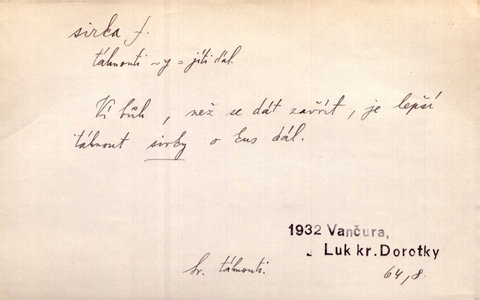 sirka f.
táhnouti ~y = jíti dál
Ví bůh, než se dát zavřít, je lepší
táhnout sirky o kus dál.
1932 Vančura,
Luk kr. Dorotky
sr. táhnouti.
64,8.